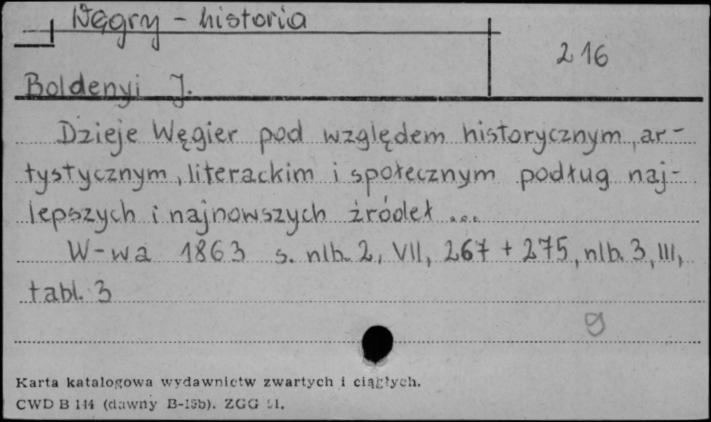 Węgry - historia
216
Boldenyi J.
Dzieje Węgier pod względem historycznym, ar-
tystycznym, literackim i społecznym podług naj-
lepszych i najnowszych źródeł ...
W-wa 1863 s. nlb. 2, VII, 267 + 275, nlb. 3, III,
tabl. 3
g
Karta katalogowa wydawnictw zwartych i ciągłych.
CWD B 144 (dawny B-15b). ZGG 51.